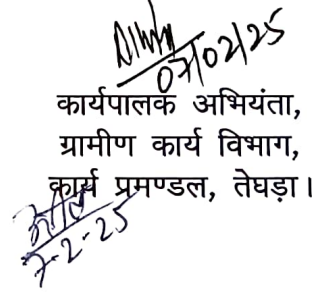 07/02/25
कार्यपालक अभियंता,
ग्रामीण कार्य विभाग,
कार्य प्रमण्डल, तेघड़ा।
7-2-25